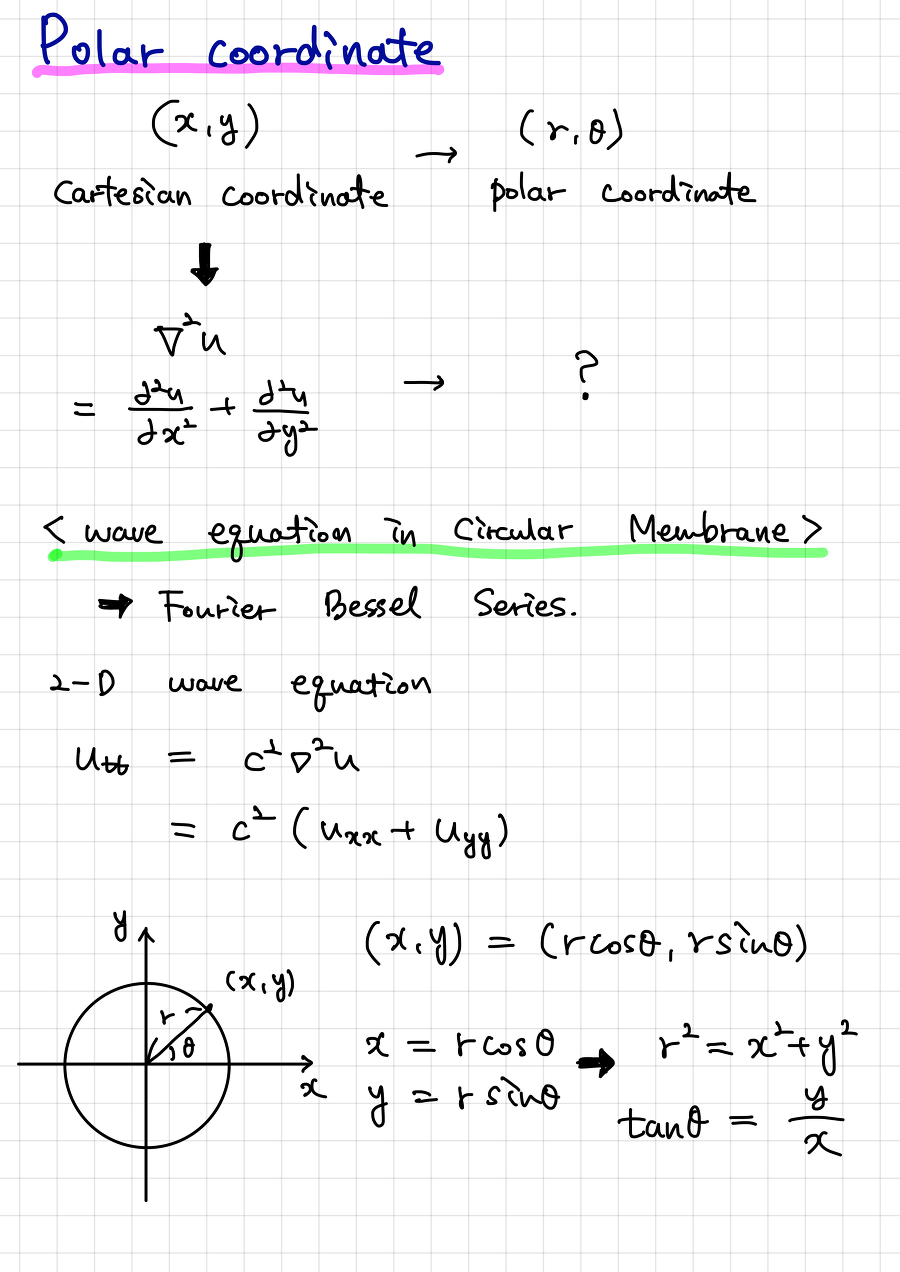 Polar coordinate
(x, y) → (r, θ)
Cartesian coordinate polar coordinate
∇²u
= ∂²u/∂x² + ∂²u/∂y² → ?
< wave equation in Circular Membrane >
➡ Fourier Bessel Series.
2-D wave equation
u_tt = c²∇²u
= c² (u_xx + u_yy)
y
(x, y)
r
θ
x
(x, y) = (r cosθ, r sinθ)
x = r cosθ ➡ r² = x² + y²
y = r sinθ
tanθ = y/x